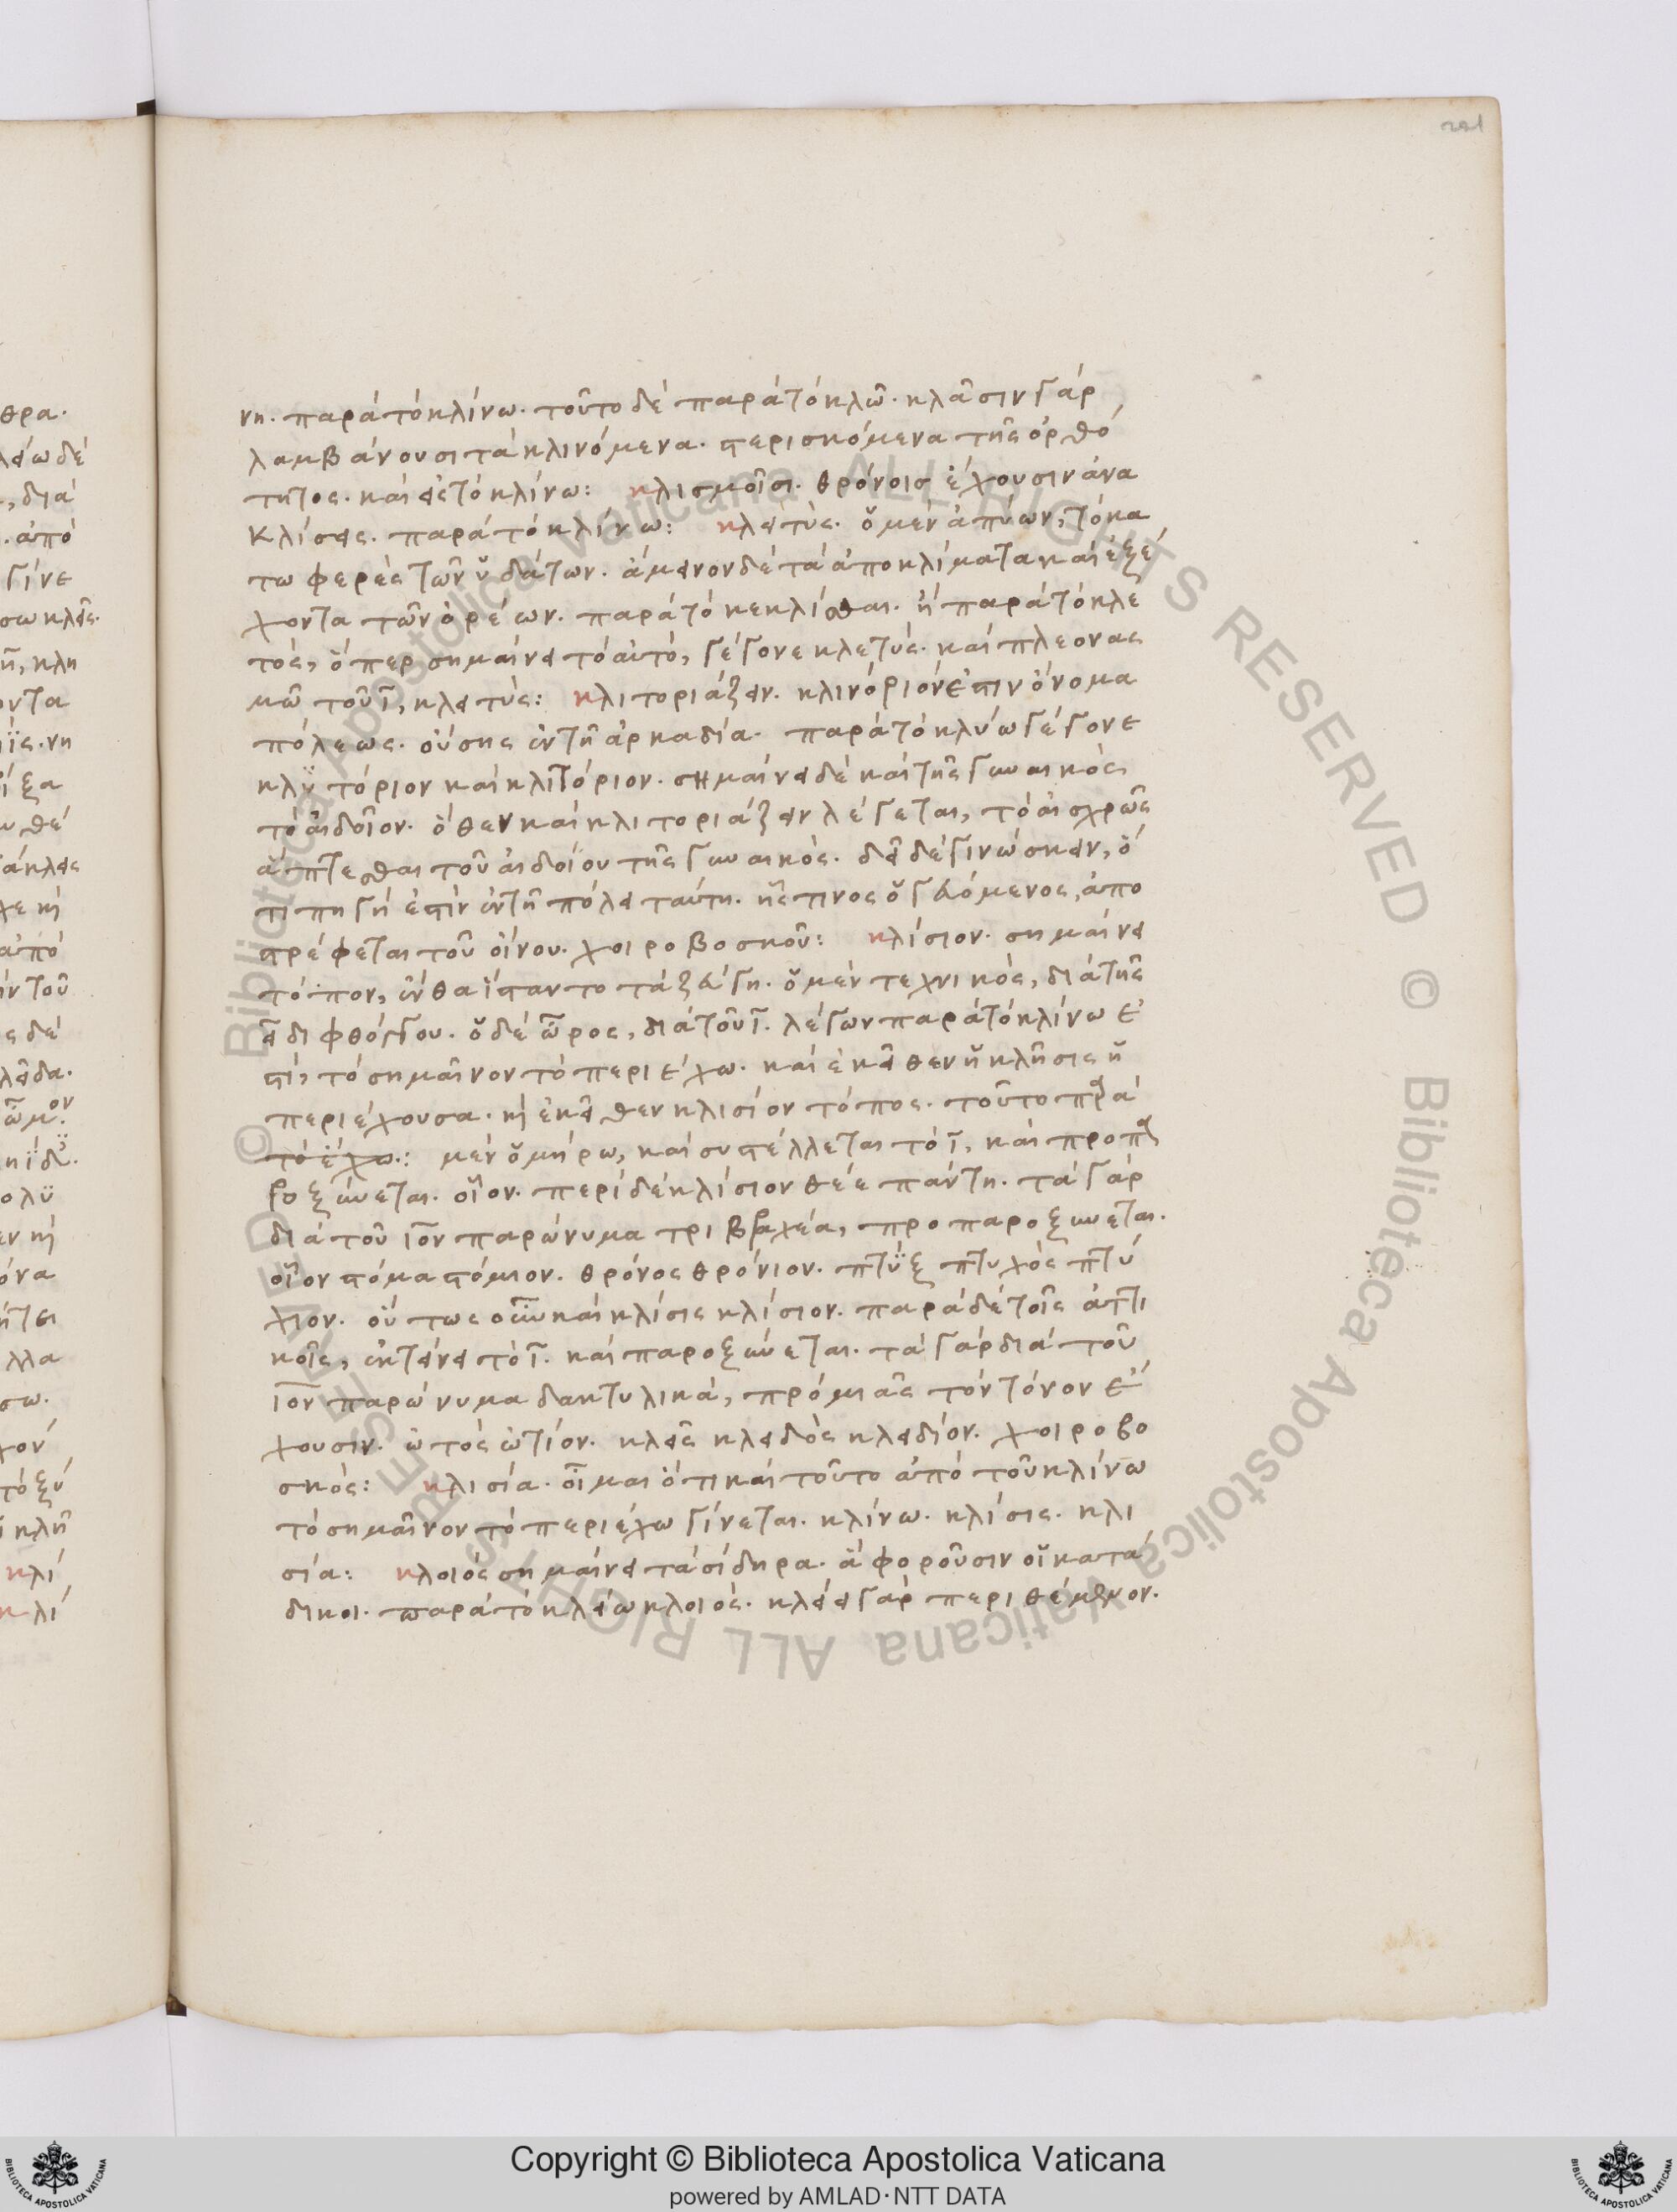 νη. παρὰ τὸ κλίνω. τοῦτο δὲ παρὰ τὸ κλῶ. κλᾶσιν γὰρ
λαμβάνουσι τὰ κλινόμενα. στερισκόμενα τῆς ὀρθό
τητος. καὶ εἰς τὸ κλίνω: κλισμοῖσι. θρόνοις ἔχουσιν ἀνα
κλίσεις. παρὰ τὸ κλίνω: κλειτὺς. ὁ μὲν ἀπίων, τὸ κα
τωφερὲς τῶν ὑδάτων. ἄμεινον δὲ τὰ ἀποκλίματα καὶ ἐξέ
χοντα τῶν ὀρέων. παρὰ τὸ κεκλίσθαι. ἢ παρὰ τὸ κλε
τός, ὅπερ σημαίνει τὸ αὐτό, γέγονε κλετύς. καὶ πλεονας
μῶ τοῦ ι, κλειτύς: κλιτοριάζειν. κλινόριόν ἐστιν ὄνομα
πόλεως. οὔσης ἐν τῆ ἀρκαδία. παρὰ τὸ κλύω γέγονε
κλϋτόριον καὶ κλιτόριον. σημαίνει δὲ καὶ τῆς γυναικὸς
τὸ αἰδοῖον. ὅθεν καὶ κλιτοριάζειν λέγεται, τὸ αἰσχρῶς
ἅπτεσθαι τοῦ αἰδοίου τῆς γυναικός. δεῖ δὲ γινώσκειν, ὅ
τι πηγή ἐστὶν ἐν τῆ πόλει ταύτη. ἧς τινος ὁ γευόμενος, ἀπο
στρέφεται τοῦ οἴνου. χοιροβοσκοῦ: κλίσιον. σημαίνει
τόπον, ἔνθα ἵσταντο τὰ ζεύγη. ὁ μὲν τεχνικός, διὰ τῆς
ει διφθόγγου. ὁ δὲ ὦρος, διὰ τοῦ ι. λέγων παρὰ τὸ κλίνω ἐ
στί, τὸ σημαῖνον τὸ περιέχω. καὶ ἐκεῖθεν ἡ κλῆσις ἡ
περιέχουσα. κὴ ἐκεῖθεν κλισίον τόπος. τοῦτο παρὰ
τὸ ἔχω.: μὲν ὁμήρω, καὶ συστέλλεται τὸ ι, καὶ προπα
ροξύνεται. οἷον. περὶ δὲ κλίσιον θέε πάντη. τὰ γὰρ
διὰ τοῦ ιον παρώνυμα τριβραχέα, προπαροξύνεται.
οἷον στόμα στόμιον. θρόνος θρόνιον. πτὺξ πτυχὸς πτύ
χιον. οὕτως οὖν καὶ κλίσις κλίσιον. παρὰ δὲ τοῖς ἀττι
κοῖς, ἐκτείνει τὸ ι. καὶ παροξύνεται. τὰ γὰρ διὰ τοῦ
ιον παρώνυμα δακτυλικά, πρόμιᾶς τὸν τόνον ἔ
χουσιν. ὠτὸς ὠτίον. κλεῖς κλειδὸς κλειδίον. χοιροβο
σκός: κλισία. οἶμαι ὅτι καὶ τοῦτο ἀπὸ τοῦ κλίνω
τὸ σημαῖνον τὸ περιέχω γίνεται. κλίνω. κλίσις. κλι
σία: κλοιὸς σημαίνει τὰ σίδηρα. ἃ φοροῦσιν οἱ κατά
δικοι. παρὰ τὸ κλείω κλοιός. κλείει γὰρ περιθέμενον.